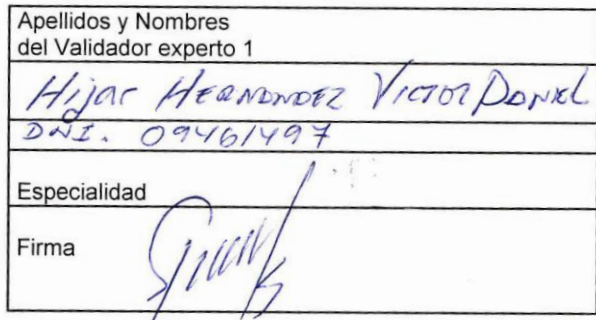 Apellidos y Nombres
del Validador experto 1
Hijar HERNANDEZ VICTOR DANIEL
DNI. 09461497
Especialidad
Firma